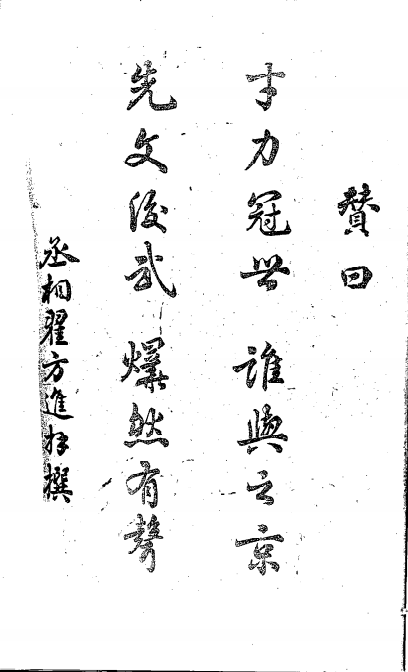 贊曰
才力冠世 誰與之京
先文後武 燁然有聲
丞相翟方進拜撰